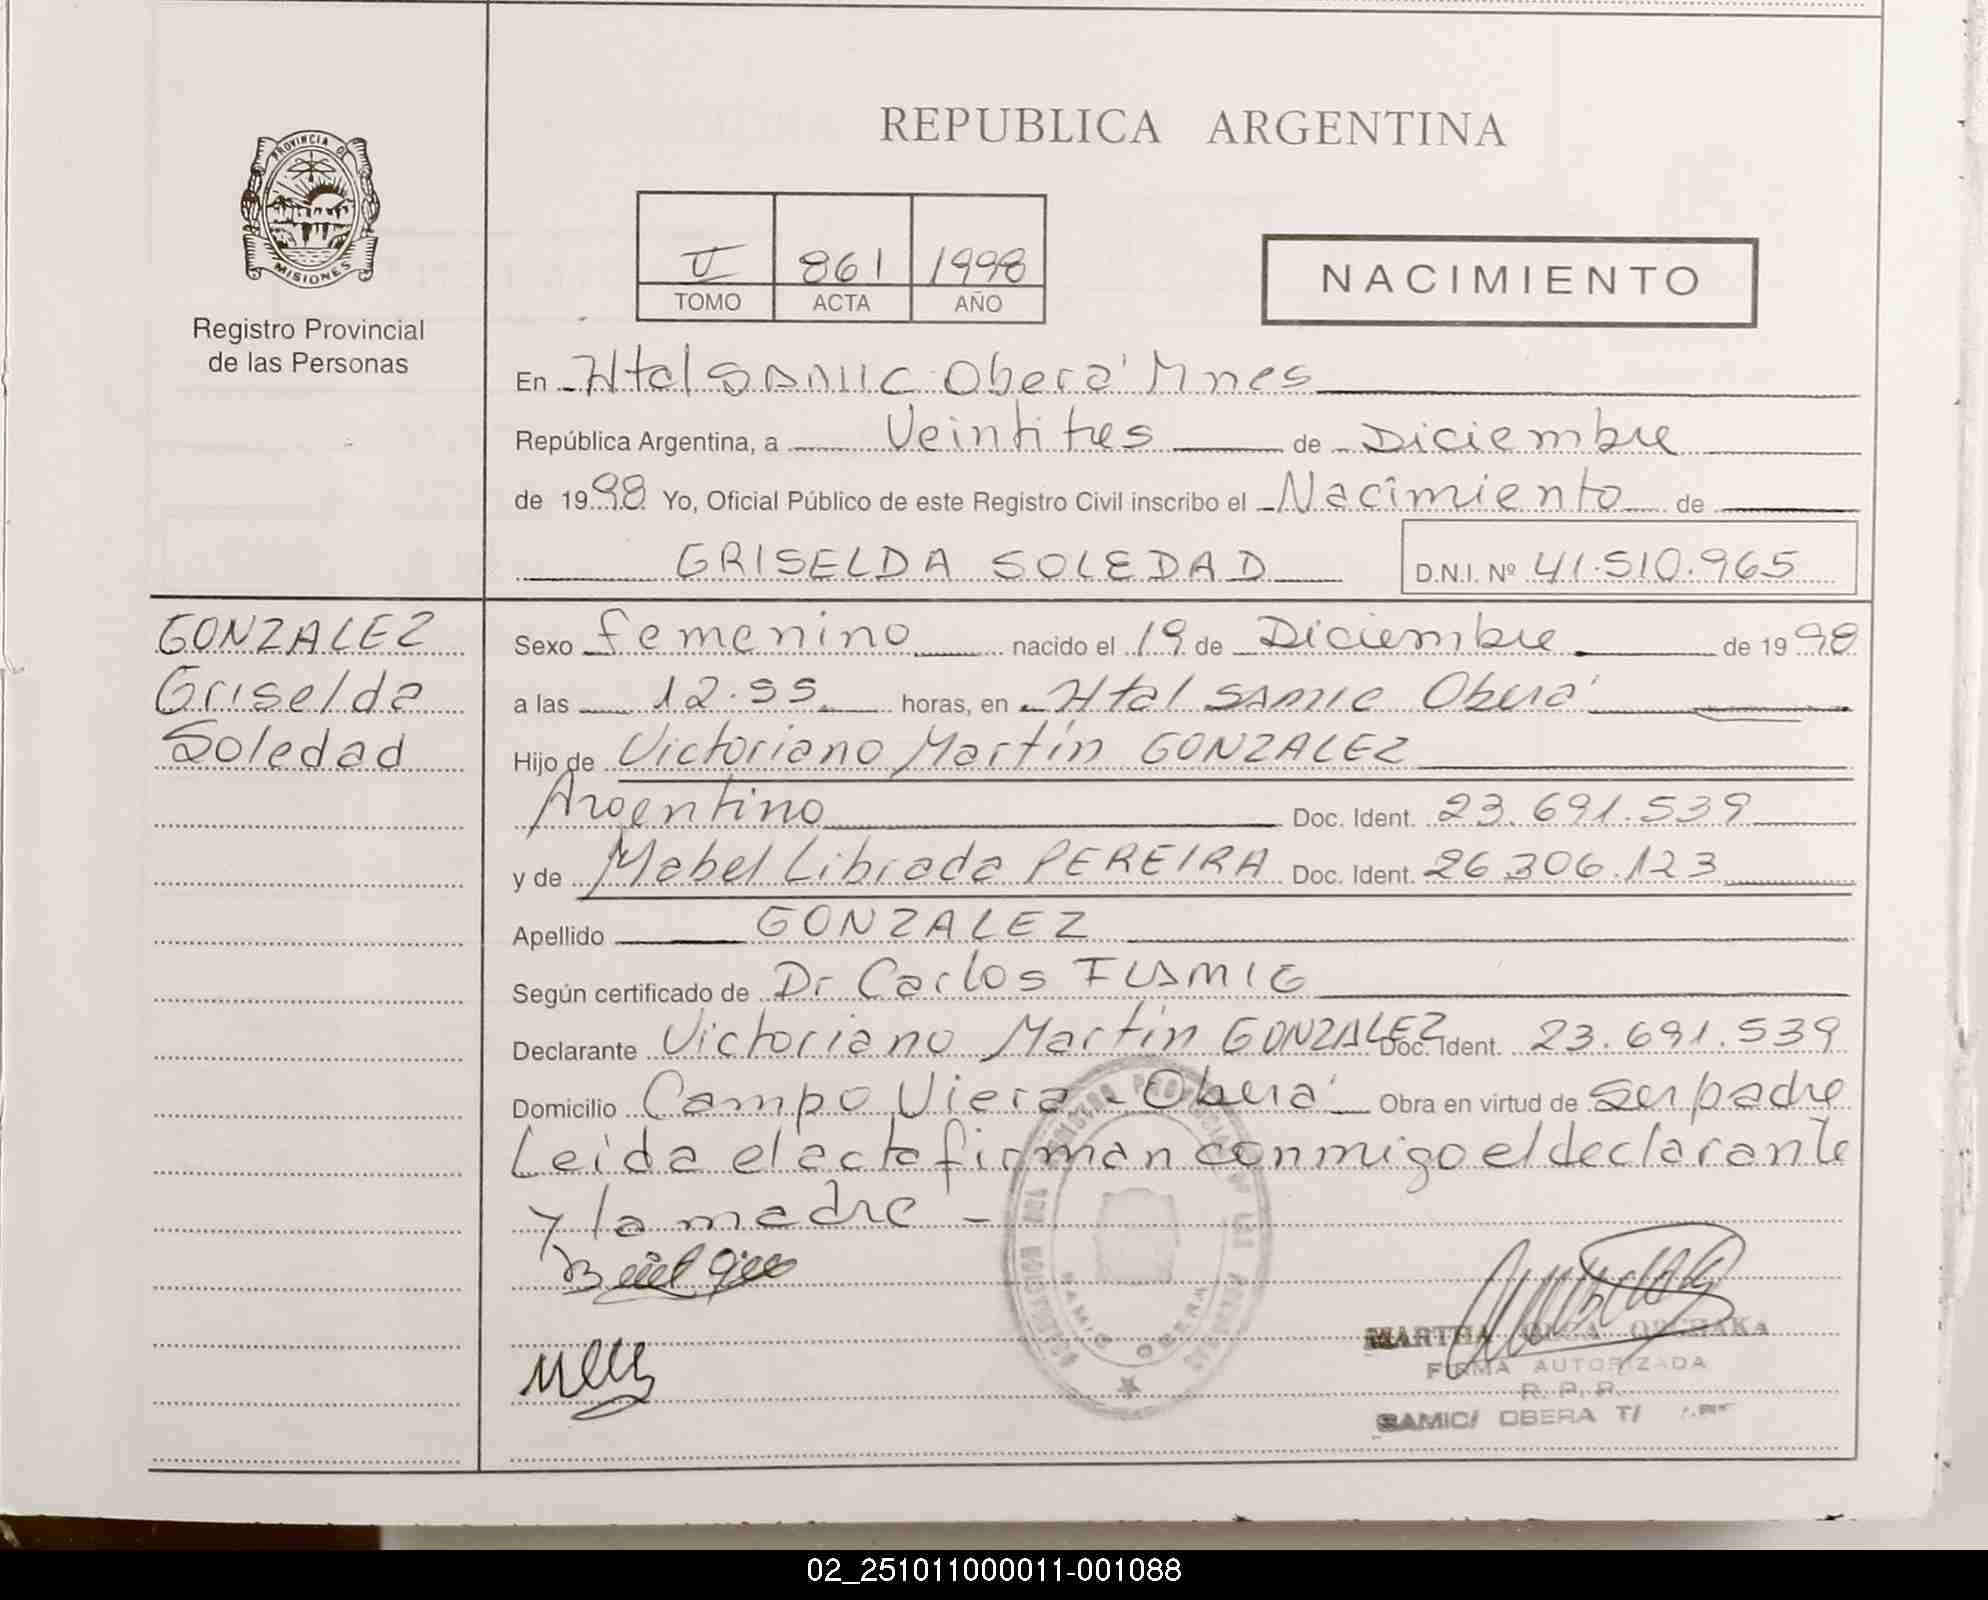 REPUBLICA ARGENTINA
PROVINCIA DE
MISIONES
Registro Provincial
de las Personas
V 861 1998
TOMO ACTA AÑO
NACIMIENTO
En Htal SAMIC Oberá Mnes
República Argentina, a Veintitres de Diciembre
de 1998 Yo, Oficial Público de este Registro Civil inscribo el Nacimiento de
GRISELDA SOLEDAD D.N.I. Nº 41.510.965
GONZALEZ
Griselda
Soledad
Sexo femenino nacido el 19 de Diciembre de 1998
a las 12.55 horas, en Htal SAMIC Oberá
Hijo de Victoriano Martín GONZALEZ
Argentino Doc. Ident. 23.691.539
y de Mabel Librada PEREIRA Doc. Ident. 26.306.123
Apellido GONZALEZ
Según certificado de Dr Carlos
Declarante Victoriano Martín GONZALEZ Doc. Ident. 23.691.539
Domicilio Campo Viera - Oberá Obra en virtud de ser padre
Leida el acta firman conmigo el declarante
y la madre -
SAMIC OBERA
MARTHA
FIRMA AUTORIZADA
R. P. P.
SAMIC/ OBERA T/
02_251011000011-001088